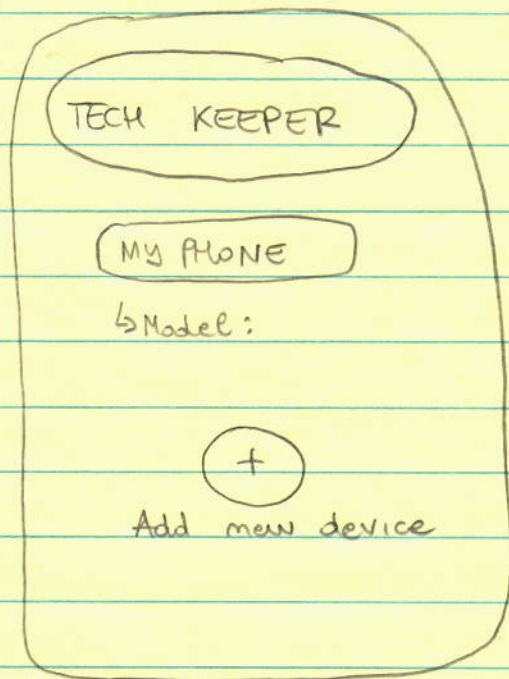 TECH KEEPER
MY PHONE
↳ Model:
+
Add new device